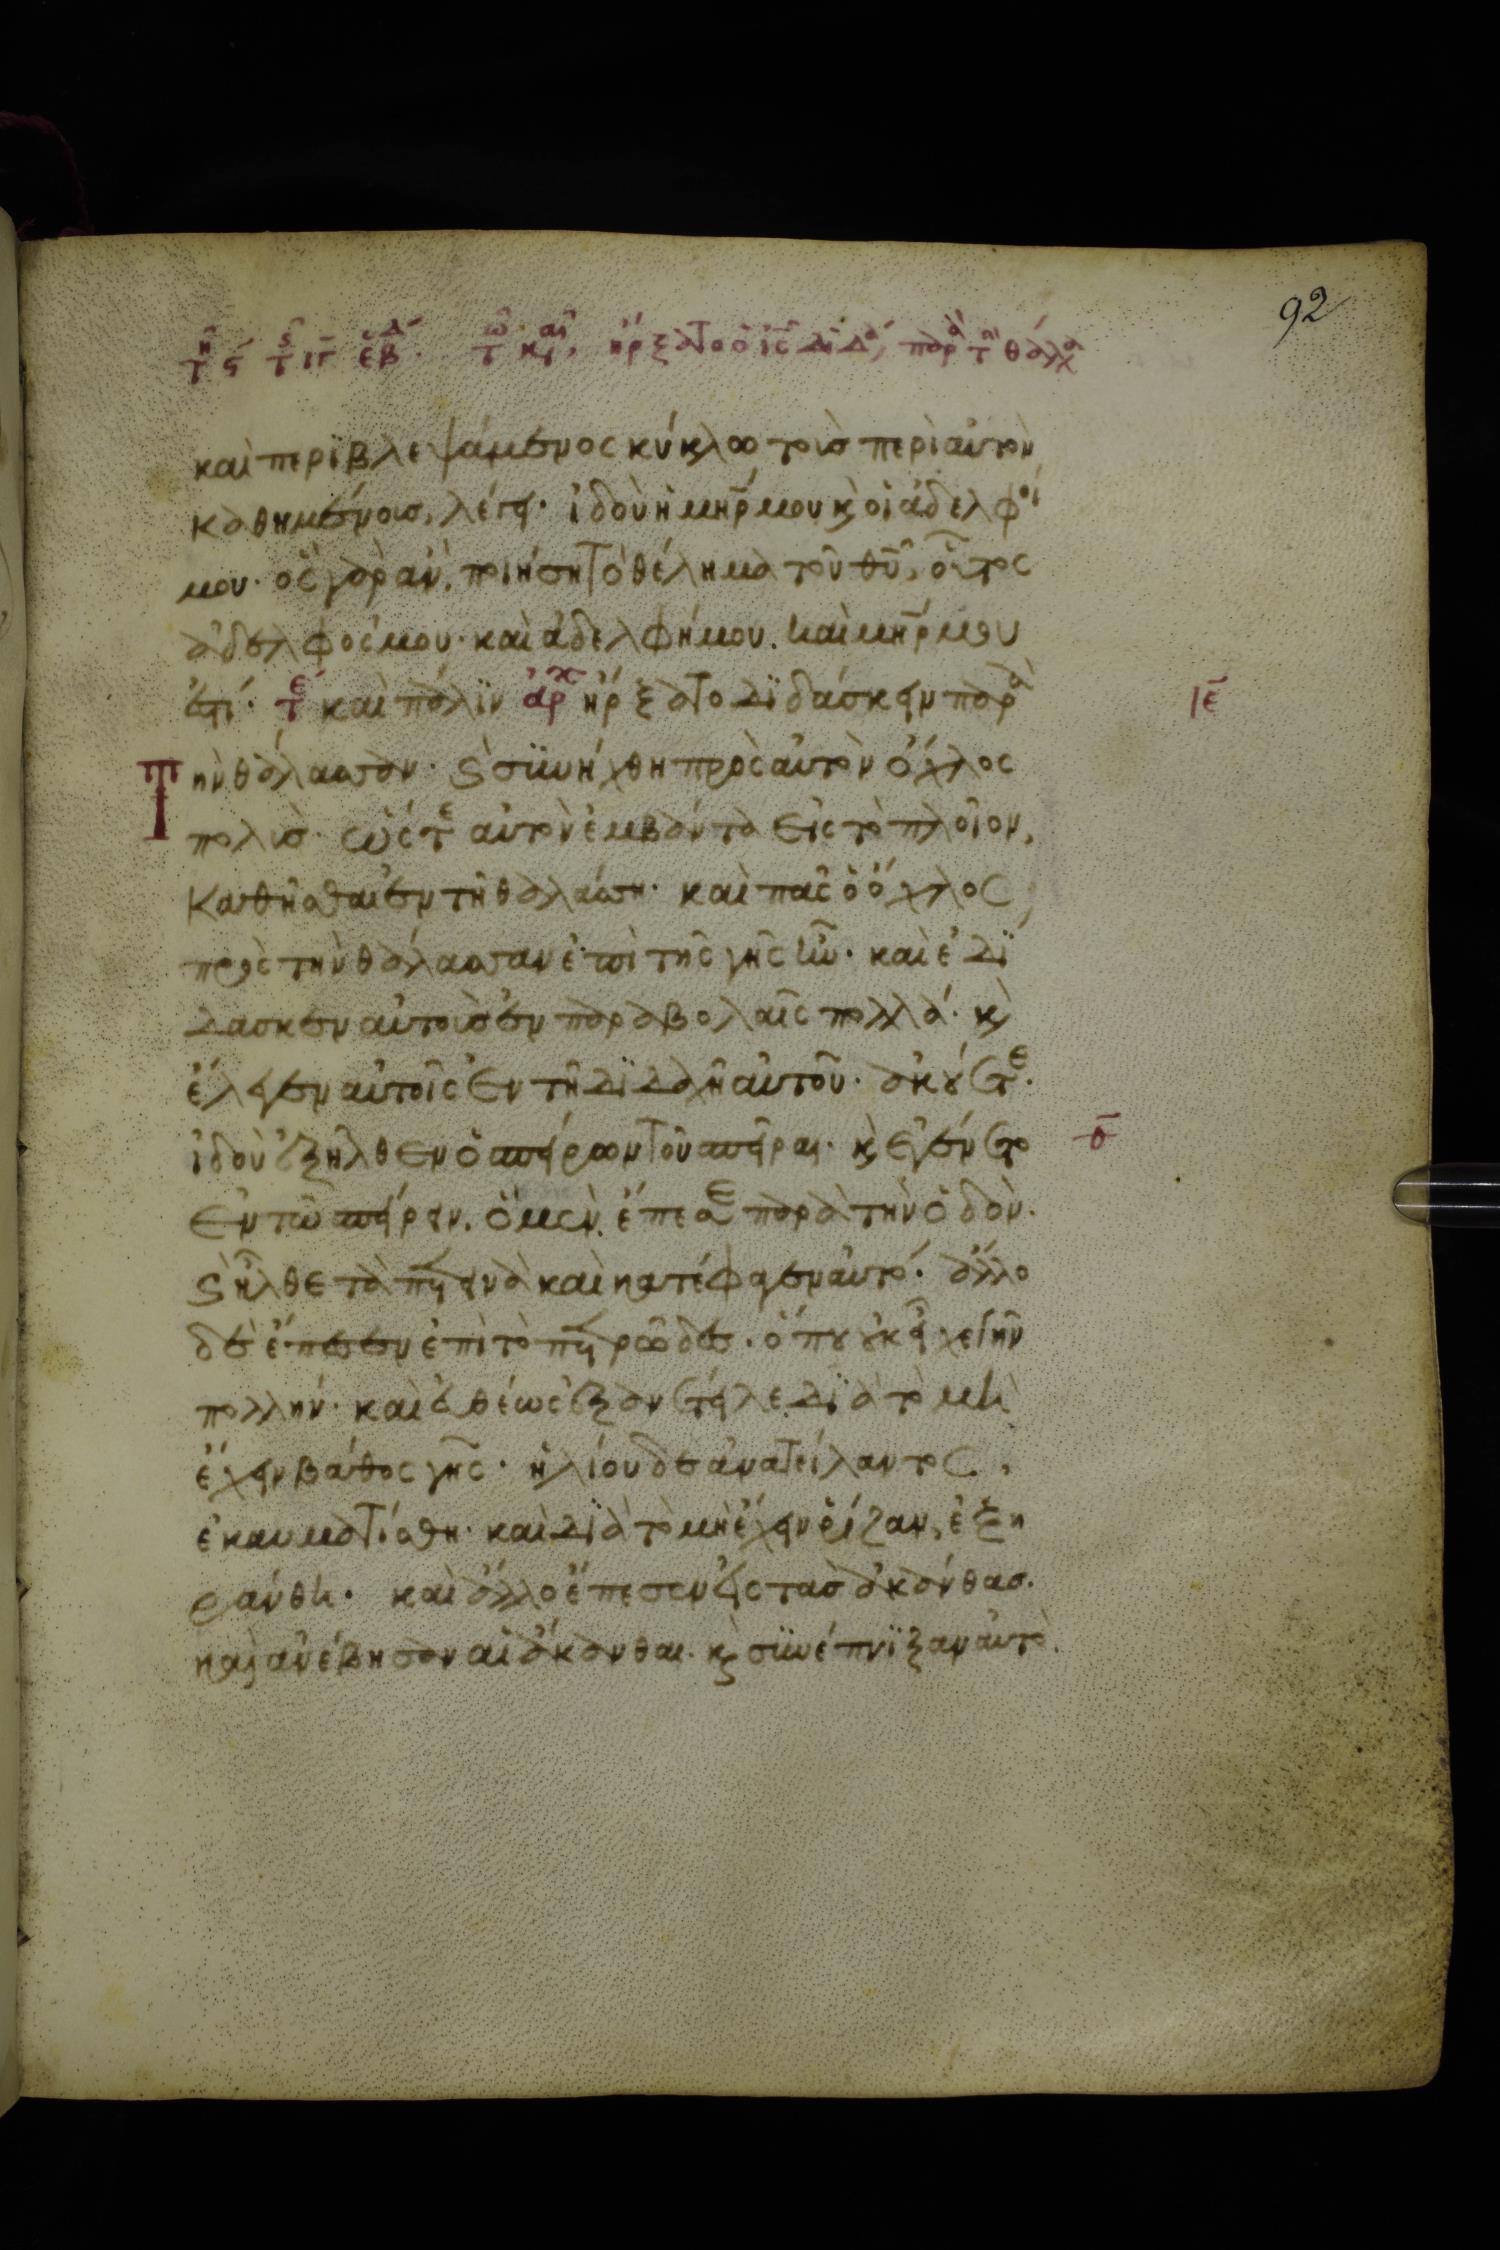 92
τῆ ϛ τ ϛ ιγ εβδ. τῶ καιρ, ἤρξατο ὁ ις διδά παρα τ θάλα
καὶ περϊβλεψάμενος κύκλω τοὺσ περὶ αὐτὸν
καθημένουσ, λέγει· ἰδοὺ ἡ μηρ μου κ οἱ ἀδελφοί
μου· ὃς γὰρ ἂν ποιήση τὸ θέλημα τοῦ θυ, οὗτος
ἀδελφός μου· καὶ ἀδελφή μου. καὶ μηρ μου
ἐστί· τε καὶ πάλϊν αρχ ἤρξατο δϊδάσκειν παρα
Τὴν θάλασσαν· κ σϋνήχθη πρὸς αὐτὸν ὄχλος
πολὺσ· ὥστε αὐτὸν ἐμβάντα εἰς τὸ πλοῖον,
καθῆσθαι ἐν τῆ θαλάσση· καὶ πᾶς ὁ ὄχλος
πρὸς τὴν θάλασσαν ἐπὶ τῆς γῆς ἦν· καὶ ἐδϊ
δασκεν αὐτοὺσ ἐν παραβολαῖς πολλά· κ
ἔλεγεν αὐτοῖς ἐν τῆ δϊδαχῆ αὐτοῦ· ἀκούετε·
ἰδοὺ ἐξῆλθεν ὁ σπείρων τοῦ σπεῖραι· κ ἐγένετο
ἐν τῶ σπείρειν. ὃ μὲν ἔπεσε παρὰ τὴν ὁδὸν·
κ ἦλθε τὰ πετεινὰ καὶ κατέφαγεν αὐτό· ἄλλο
δὲ ἔπεσεν ἐπὶ τὸ πετρῶδεσ· ὅπου οὐκ εἶχε γῆν
πολλήν· καὶ εὐθέως ἐξανέτειλε δϊὰ τὸ μὴ
ἔχειν βάθος γῆς· ἡλίου δὲ ἀνατείλαντος,
ἐκαυματίσθη· καὶ δϊὰ τὸ μὴ ἔχειν ῥίζαν, ἐξη
ράνθη· καὶ ἄλλο ἔπεσεν εἰς τὰσ ἀκάνθασ·
καὶ ἀνέβησαν αἱ ἄκανθαι· κ σϋνέπνϊξαν αὐτὸ.
ιε
ο